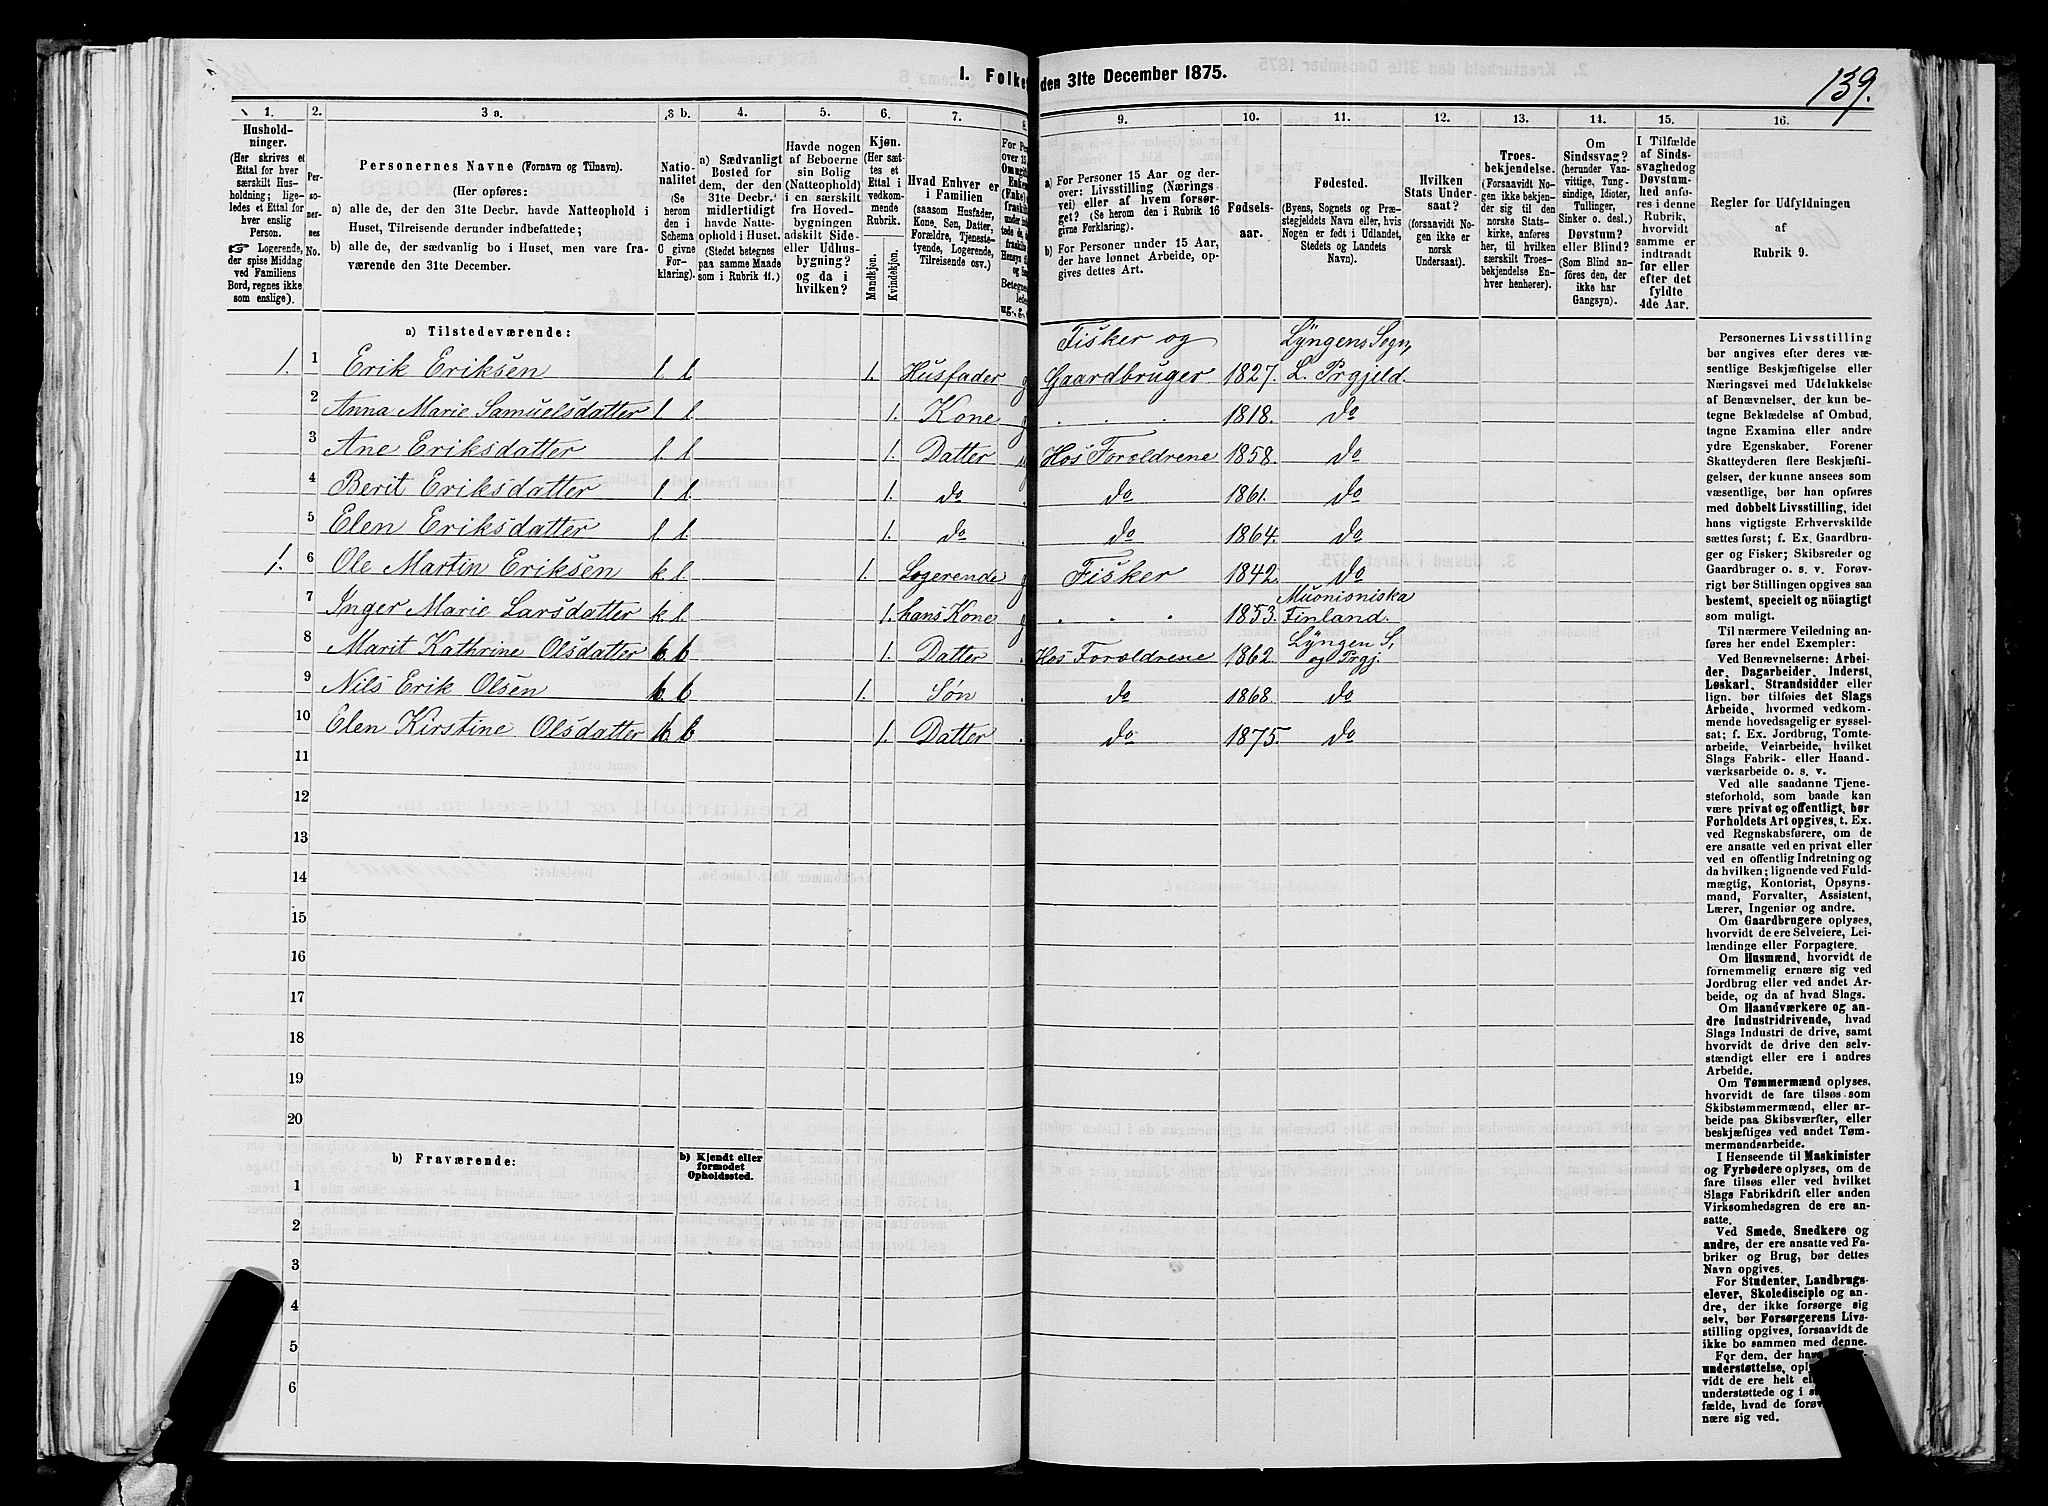 139.
I. Folke den 31te December 1875.
1. 2. 3 a. 3 b. 4. 5. 6. 7. 8. 9. 10. 11. 12. 13. 14. 15. 16.
Hushold-
ninger.
(Her skrives et
Ettal for hver
særskilt Hus-
holdning; lige-
ledes et Ettal for
hver enslig
Person.
☞ Logerende,
der spise Middag
ved Familiens
Bord, regnes ikke
som enslige).
Per-
so-
ner-
nes
No.
Personernes Navne (Fornavn og Tilnavn).
(Her opføres:
a) alle de, der den 31te Decbr. havde Natteophold i
Huset, Tilreisende derunder indbefattede;
b) alle de, der sædvanlig bo i Huset, men vare fra-
værende den 31te December.
Natio-
nalitet
(Se
herom
den i
Schema
C givne
For-
klaring).
a) Sædvanligt
Bosted for
dem, der den
31te Decbr.
midlertidigt
havde Natte-
ophold i Huset.
(Stedet betegnes
paa samme Maade
som i Rubrik 11.)
Havde nogen
af Beboerne
sin Bolig
(Natteophold)
i en særskilt
fra Hoved-
bygningen
adskilt Side-
eller Udhus-
bygning?
og da i
hvilken?
Kjøn.
(Her sæt-
tes et
Ettal i
vedkom-
mende
Rubrik.
Mandkjøn.
Kvindekjøn.
Hvad Enhver er
i Familien
(saasom Husfader,
Kone, Søn, Datter,
Forældre, Tjeneste-
tyende, Logerende,
Tilreisende osv.)
a) For Personer 15 Aar og der-
over: Livsstilling (Nærings-
vei) eller af hvem forsør-
get? (Se herom den i Rubrik 16
givne Forklaring).
b) For Personer under 15 Aar,
der have lønnet Arbeide, op-
gives dettes Art.
Fødsels-
aar.
Fødested.
(Byens, Sognets og Præ-
stegjeldets Navn eller, hvis
Nogen er født i Udlandet,
Stedets og Landets
Navn).
Hvilken
Stats Under-
saat?
(forsaavidt No-
gen ikke er
norsk
Undersaat).
Troes-
bekjendelse.
(Forsaavidt No-
gen ikke bekjen-
der sig til den
norske Stats-
kirke, anføres
her, til hvilken
særskilt Troes-
bekjendelse En-
hver henhører).
Om
Sindssvag?
(herunder Van-
vittige, Tung-
sindige, Idioter,
Tullinger,
Sinker o. desl.)
Døvstum?
eller Blind?
(Som Blind an-
føres den, der
ikke har
Gangsyn).
I Tilfælde
af Sinds-
svaghed og
Døvstum-
hed anfø-
res i denne
Rubrik,
hvorvidt
samme er
indtraadt
før eller
efter det
fyldte
4de Aar.
Regler for Udfyldningen
af
Rubrik 9.
a) Tilstedeværende:
1. 1 Erik Eriksen l. l. 1. Husfader g Fisker og Gaardbruger 1827. Lyngens Sogn, L. Prgjeld.
2 Anna Marie Samuelsdatter l. l. 1. Kone g . . . 1818. do
3 Ane Eriksdatter l. l. 1. Datter Hos Foroldrene 1858. do
4 Berit Eriksdatter l. l. 1. do . do 1861. do
5 Elen Eriksdatter l. l. 1. do . do 1864. do
1. 6 Ole Martin Eriksen k. l. 1. Logerende g Fisker 1842. do
7 Inger Marie Larsdatter k. l. 1. hans Kone g . . . 1853. Muonisniska Finland.
8 Marit Kathrine Olsdatter b. b 1. Datter . Hos Foroldrene 1862. Lyngen S, og Prgj.
9 Nils Erik Olsen b. b 1. Søn . do 1868. do
10 Elen Kirstine Olsdatter b. b 1. Datter . do 1875. do
11
12
13
14
15
16
17
18
19
20
b) Fraværende: b) Kjendt eller
formodet
Opholdssted.
1
2
3
4
5
6
Personernes Livsstilling
bør angives efter deres væ-
sentlige Beskjæftigelse eller
Næringsvei med Udelukkelse
af Benævnelser, der kun be-
tegne Beklædelse af Ombud,
tagne Examina eller andre
ydre Egenskaber. Forener
Skatteyderen flere Beskjæfti-
gelser, der kunne ansees som
væsentlige, bør han opføres
med dobbelt Livsstilling, idet
hans vigtigste Erhvervskilde
sættes først; f. Ex. Gaardbru-
ger og Fisker; Skibsreder og
Gaardbruger o. s. v. Forøv-
rigt bør Stillingen opgives saa
bestemt, specielt og nöiagtigt
som muligt.
Til nærmere Veiledning an-
føres her endel Exempler:
Ved Benævnelserne: Arbei-
der, Dagarbeider, Inderst,
Løskarl, Strandsidder eller
lign. bør tilføies det Slags
Arbeide, hvormed vedkom-
mende hovedsagelig er syssel-
sat; f. Ex. Jordbrug, Tomte-
arbeide, Veiarbeide, hvilket
Slags Fabrik- eller Haand-
værksarbeide o. s. v.
Ved alle saadanne Tjene-
steforhold, som baade kan
være privat og offentligt, bør
Forholdets Art opgives, t. Ex.
ved Regnskabsførere, om de
ere ansatte ved en privat eller
ved en offentlig Indretning og
da hvilken; lignende ved Fuld-
mægtig, Kontorist, Opsyns-
mand, Forvalter, Assistent,
Lærer, Ingeniør og andre.
Om Gaardbrugere oplyses,
hvorvidt de ere Selveiere, Lei-
lændinge eller Forpagtere.
Om Husmænd, hvorvidt de
fornemmelig ernære sig ved
Jordbrug eller ved andet Ar-
beide, og da af hvad Slags.
Om Haandværkere og an-
dre Industridrivende, hvad
Slags Industri de drive, samt
hvorvidt de drive den selv-
stændigt eller ere i andres
Arbeide.
Om Tømmermænd oplyses,
hvorvidt de fare tilsøs som
Skibstømmermænd, eller ar-
beide paa Skibsværfter, eller
beskjæftiges ved andet Tøm-
mermandsarbeide.
I Henseende til Maskinister
og Fyrbødere oplyses, om de
fare tilsøs eller ved hvilket
Slags Fabrikdrift eller anden
Virksomhedsgren de ere an-
satte.
Ved Smede, Snedkere og
andre, der ere ansatte ved Fa-
briker og Brug, bør dettes
Navn opgives.
For Studenter, Landbrugs-
elever, Skoledisciple og an-
dre, der ikke forsørge sig
selv, bør Forsørgerens Livs-
stilling opgives, forsaavidt de
ikke bo sammen med denne.
For dem, der have
understøttelse,
vidt de ere helt
understøttede og i
fælde, hvad de
nære sig ved.